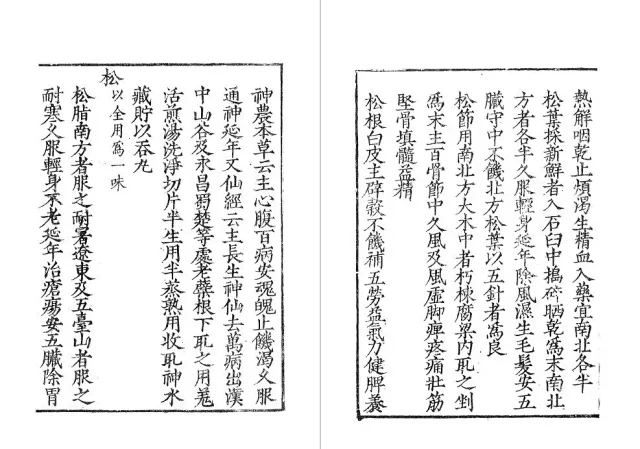 神農本草云主心腹百病安魂魄止饑渴久服
通神延年又仙經云主長生神仙去萬病出漢
中山谷及永昌蜀楚等處老蘖根下取之用羗
活煎湯洗淨切片半生用半蒸熟用收取神水
藏貯以吞丸
松以全用爲一味
松脂南方者服之耐暑遼東及五臺山者服之
耐寒久服輕身不老延年治瘡瘍安五臟除胃
熱解咽乾止煩渴生精血入藥宜南北各半
松葉採新鮮者入石臼中搗碎晒乾爲末南北
方者各半久服輕身延年除風濕生毛髮安五
臟守中不饑北方松葉以五針者爲良
松節用南北方大木中者朽棟腐梁內取之剉
爲末主百骨節中久風及風虛脚痺疼痛壯筋
堅骨填髓益精
松根白皮主辟穀不饑補五勞益氣力健脾養